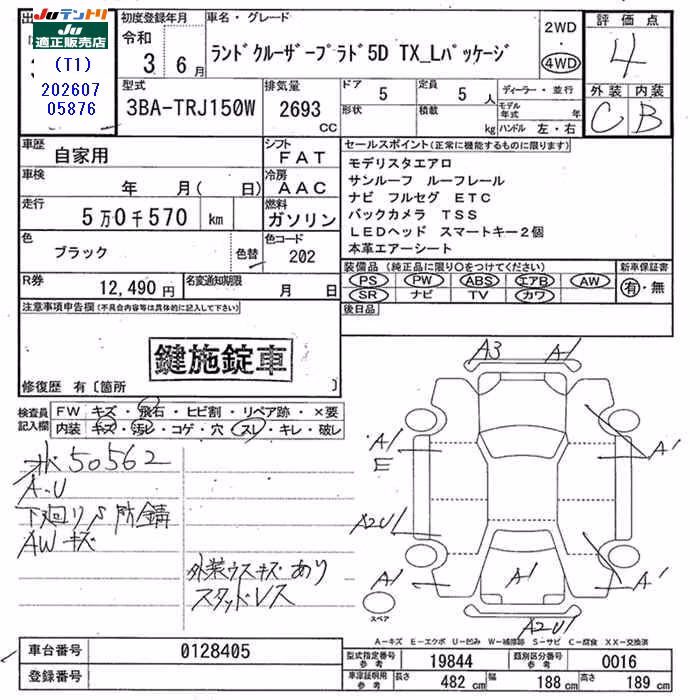 JUテントリ
JU 適正販売店
(T1)
202607
05876
初度登録年月
令和
3 6月
車名・グレード
ランドクルーザープラド5D TX_Lパッケージ
2WD
・
4WD
評価点
4
外装 内装
C B
型式
3BA-TRJ150W
排気量
2693
CC
ドア 5
形状
定員 5 人
積載 kg
ディーラー・並行
モデル年式 年
ハンドル 左・右
車歴
自家用
シフト
FAT
車検
年 月( 日)
冷房
AAC
走行
5万0千570 km
燃料
ガソリン
色
ブラック
色替
色コード
202
R券
12,490円
名変通知期限
月 日
セールスポイント(正常に機能するものに限ります)
モデリスタエアロ
サンルーフ ルーフレール
ナビ フルセグ ETC
バックカメラ TSS
LEDヘッド スマートキー2個
本革エアーシート
装備品(純正品に限り○をつけてください)
PS PW ABS エアB AW
SR ナビ TV カワ
新車保証書
有・無
後日品
注意事項申告欄(不具合内容等は具体的に記入して下さい)
鍵施錠車
修復歴 有〔箇所 〕
検査員
記入欄
FW キズ・飛石・ヒビ割・リペア跡・×要
内装 キズ・汚レ・コゲ・穴・スレ・キレ・破レ
50562
A・U
下廻りS防錆
AWキズ
外装ウスキズあり
スタッドレス
A3 A1
A1
E
A1
A2U1
A1
A1
A1
A2U1
スペア
A−キズ E−エクボ U−凹み W−補修跡 S−サビ C−腐食 XX−交換済
車台番号
0128405
登録番号
型式指定番号
参考
19844
類別区分番号
参考
0016
車庫証明用
参考
長さ 482 cm
幅 188 cm
高さ 189 cm